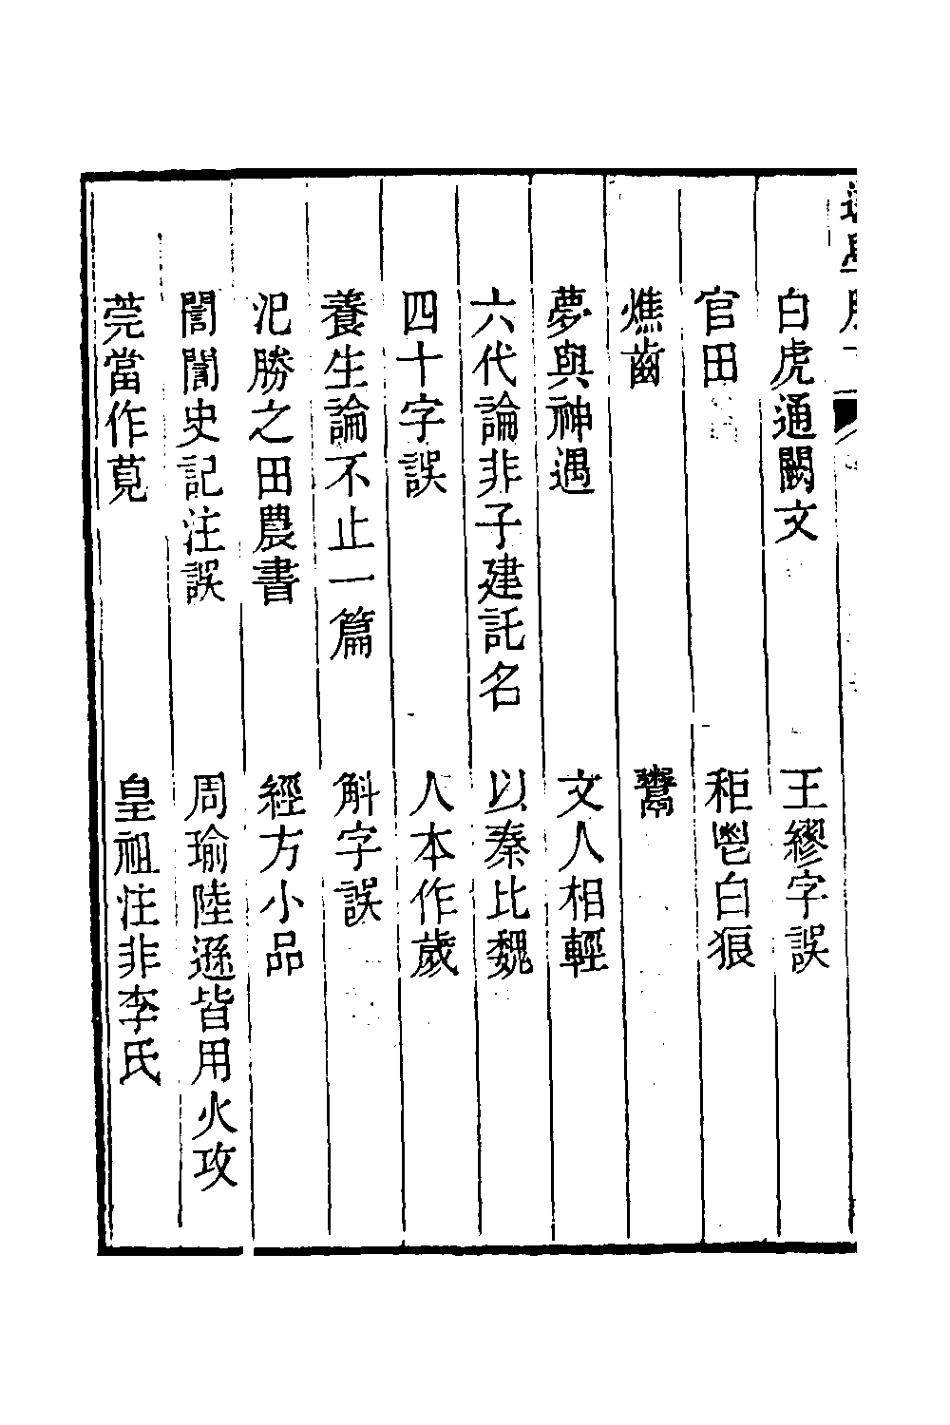 白虎通闕文　王繆字誤
官田　秬鬯白狼
燋齒
夢與神遇　文人相輕
六代論非子建託名　以秦比魏
四十字誤　人本作歲
養生論不止一篇　斛字誤
汜勝之田農書　經方小品
誾誾史記注誤　周瑜陸遜皆用火攻
莞當作莧　皇祖注非李氏